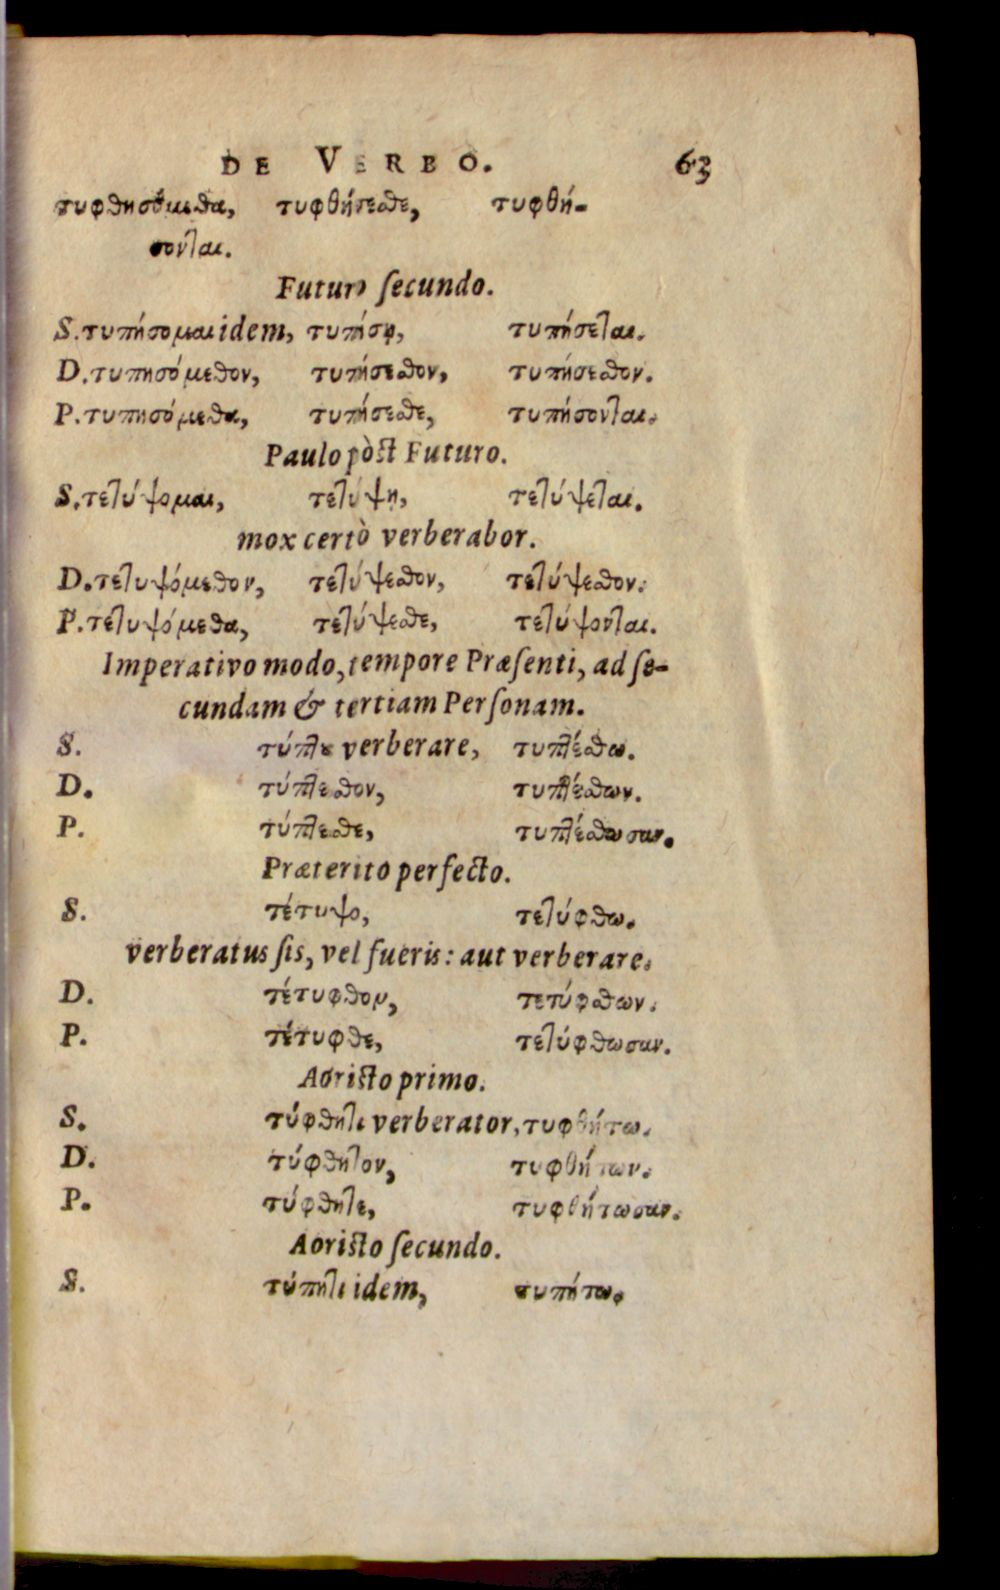 DE VERBO. 63
τυφθησόμεθα, τυφθήσεσθε, τυφθή-
σονται.
Futuro ſecundo.
S. τυπήσομαι idem, τυπήσῃ, τυπήσεται.
D. τυπησόμεθον, τυπήσεσθον, τυπήσεσθον.
P. τυπησόμεθα, τυπήσεσθε, τυπήσονται.
Paulo pòst Futuro.
S. τετύψομαι, τετύψῃ, τετύψεται.
mox certò verberabor.
D. τετυψόμεθον, τετύψεσθον, τετύψεσθον.
P. τετυψόμεθα, τετύψεσθε, τετύψονται.
Imperativo modo, tempore Præſenti, ad ſe-
cundam & tertiam Perſonam.
S. τύπτου verberare, τυπτέσθω.
D. τύπτεσθον, τυπτέσθων.
P. τύπτεσθε, τυπτέσθωσαν.
Præterito perfecto.
S. τέτυψο, τετύφθω.
verberatus ſis, vel fueris: aut verberare.
D. τέτυφθον, τετύφθων.
P. τέτυφθε, τετύφθωσαν.
Aoristo primo.
S. τύφθητι verberator, τυφθήτω.
D. τύφθητον, τυφθήτων.
P. τύφθητε, τυφθήτωσαν.
Aoristo ſecundo.
S. τύπητι idem, τυπήτω.